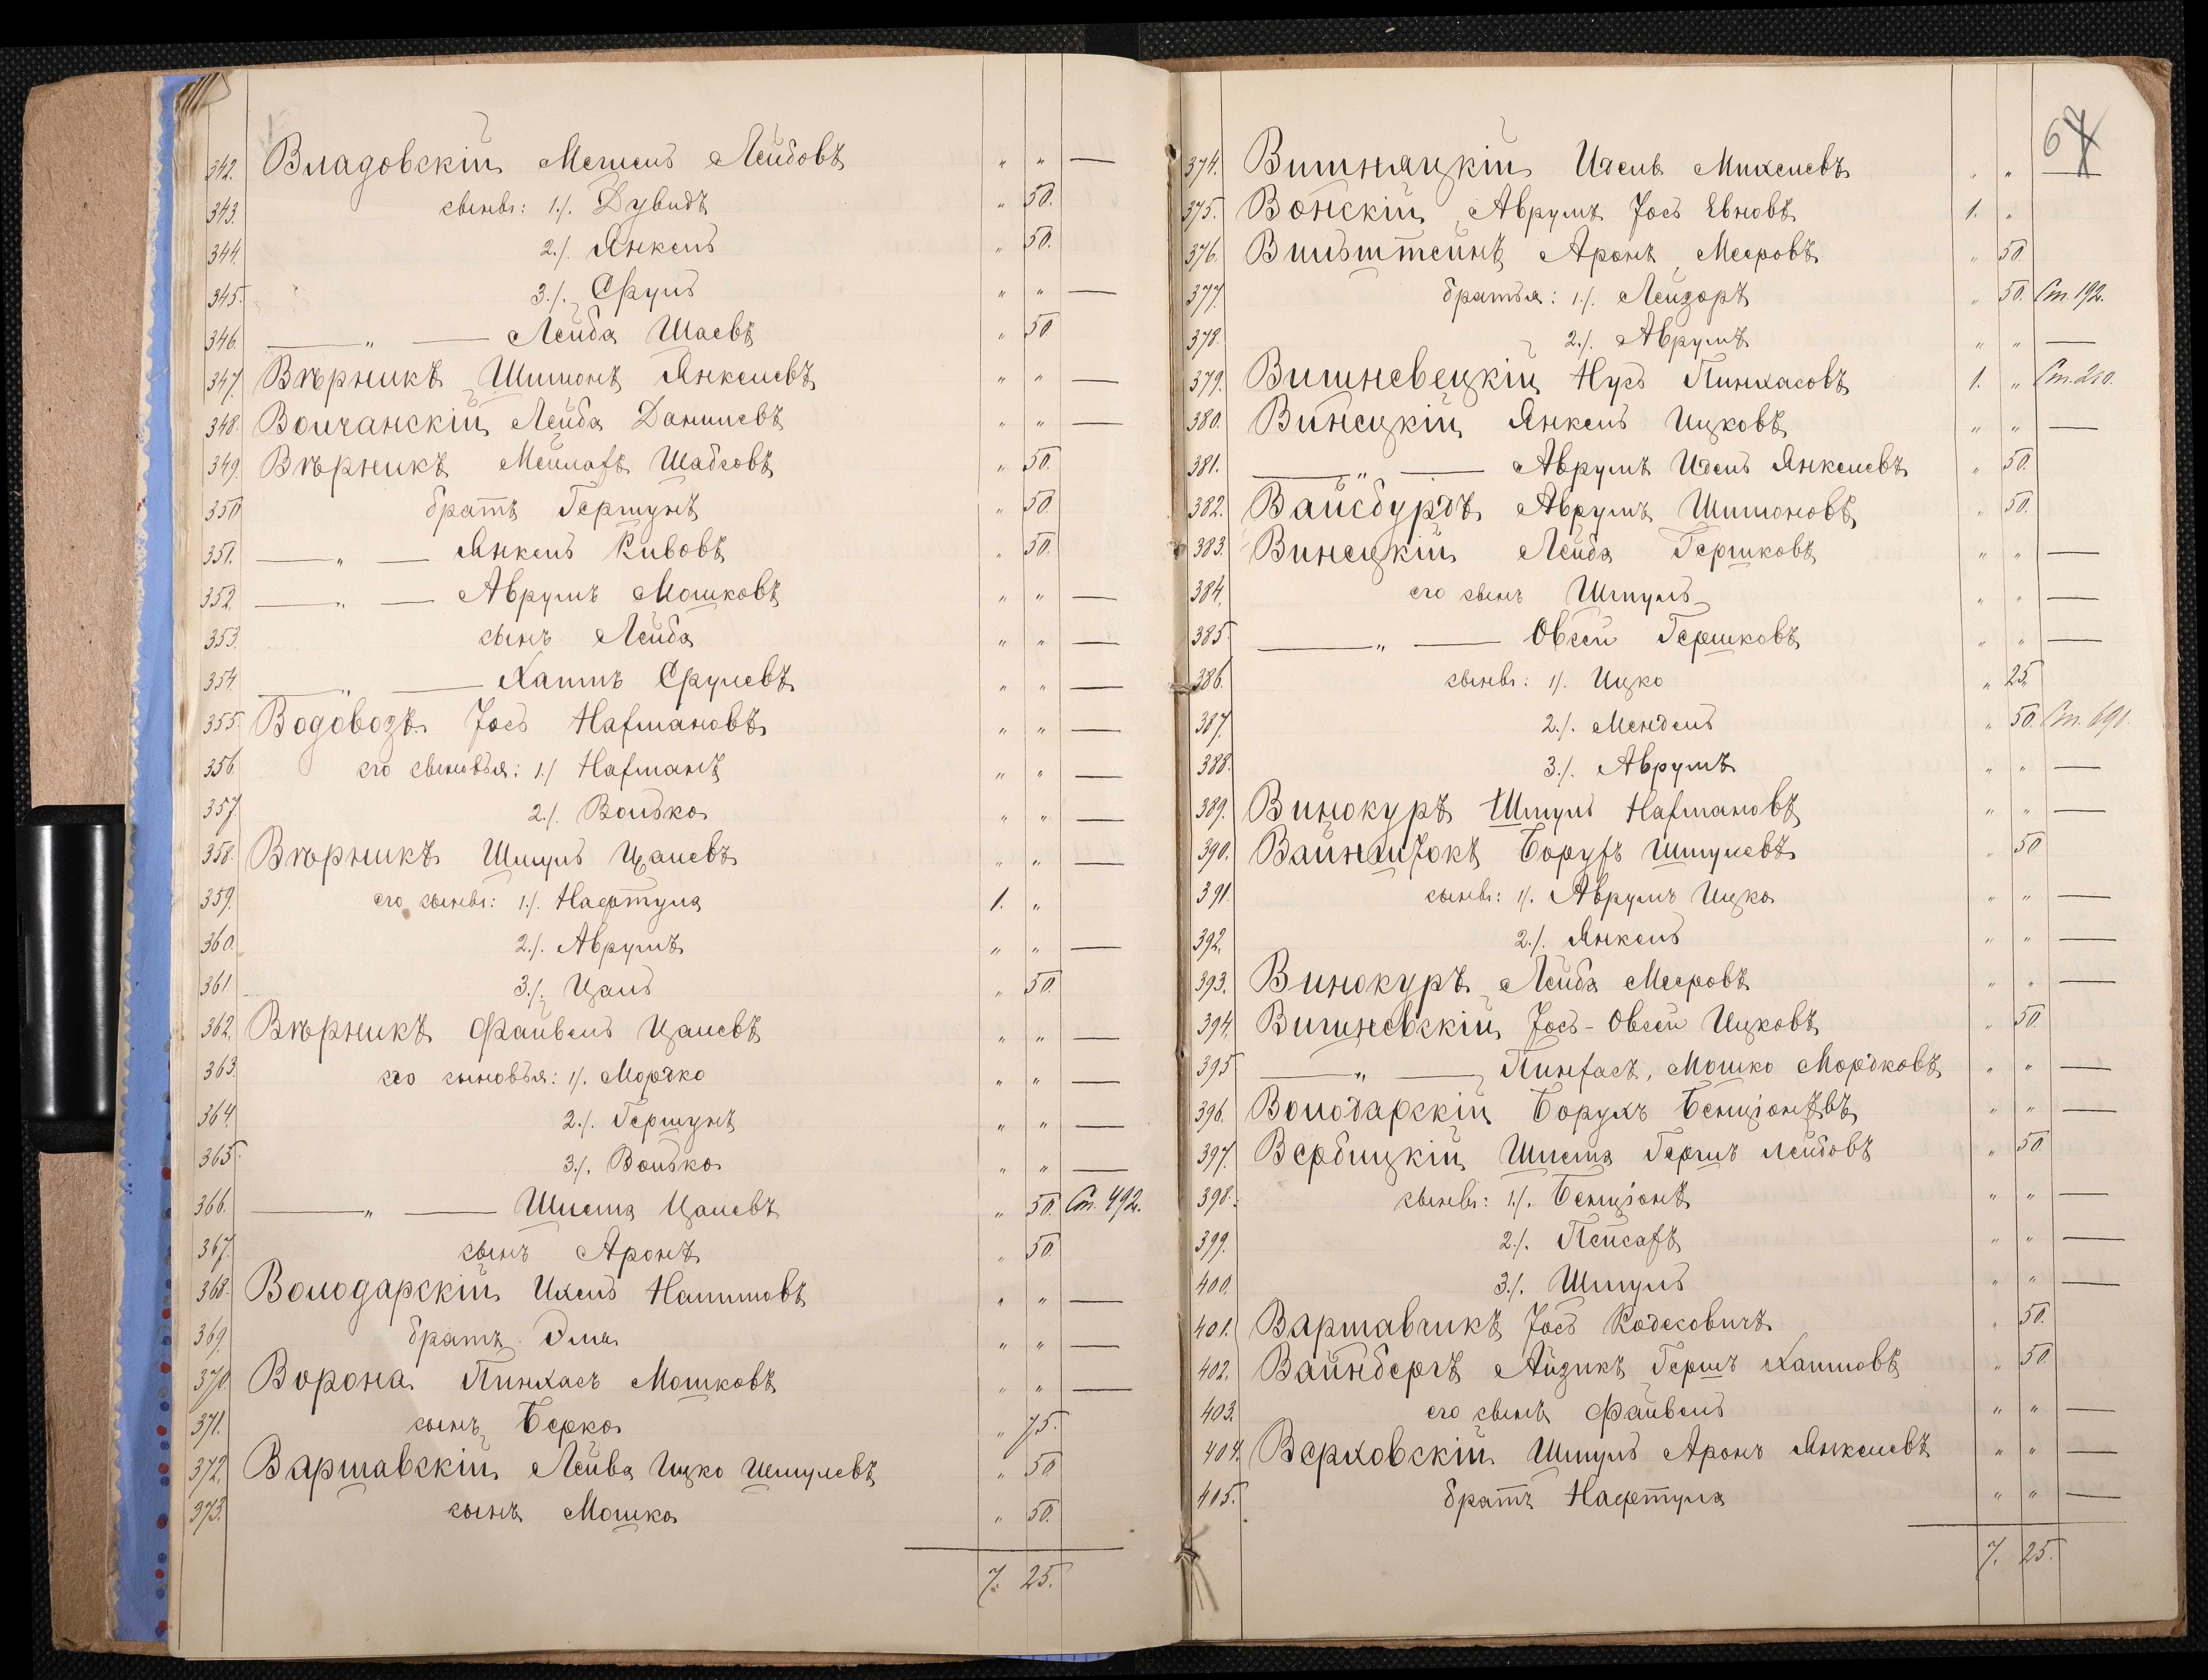 342. Владовскій Мечель Лейбовъ " " —
343. сыновь: 1/. Дувидъ " 50.
344. 2/. Янкель " 50.
345. 3/. Сруль " " —
346. — " — Лейба Шаевъ " 50
347. Вѣрникъ Шимонъ Янкелевъ " " —
348. Волчанскій Лейба Данилевъ " " —
349. Вѣрникъ Мейлахъ Шабсовъ " 50.
350 братъ Гершунъ " 50.
351. — " — Янкель Кивовъ " 50.
352. — " — Аврумъ Мошковъ " " —
353. сынъ Лейба " " —
354. — " — Хаимъ Срулевъ " " —
355. Водовозъ Іось Нахмановъ " " —
356. его сыновья: 1/ Нахманъ " " —
357. 2/. Волько " " —
358. Вѣрникъ Шмуль Цалевъ " " —
359. его сыновь: 1/. Нафтула 1. "
360. 2/. Аврумъ " " —
361. 3/. Цаль " 50.
362. Вѣрникъ Файвель Цалевъ " " —
363. его сыновья: 1/. Мордко " " —
364. 2/. Гершунъ " " —
365. 3/. Волько " " —
366. — " — Шлема Цалевъ " 50. Ст. 492.
367. сынъ Аронъ " 50.
368. Володарскій Ихель Наттовъ " " —
369. братъ Эля " " —
370. Ворона Пинхасъ Мошковъ " " —
371. сынъ Берко " 75.
372. Варшавскій Лейва Ицко Шмулевъ " 50
373. сынъ Мошко " 50.
7. 25.
67
374. Вишняцкій Идель Михелевъ " " —
375. Вонскій Аврумъ Іось Евновъ 1. "
376. Вильштейнъ Аронъ Мееровъ " 50.
377. братья: 1/. Лейзоръ " 50. Ст. 192.
378. 2/. Аврумъ " " —
379. Вишневецкій Нусъ Пинхасовъ 1. " Ст. 210.
380. Винецкій Янкель Ицковъ " " —
381. — " — Аврумъ Идель Янкелевъ " 50.
382. Вайсбурдъ Аврумъ Шимоновъ " 50.
383. Винецкій Лейба Гершковъ " " —
384. его сынъ Шмуль " " —
385 — " — Овсей Гершковъ " " —
386. сыновь: 1/. Ицко " 25.
387. 2/. Мендель " 50. Ст. 691.
388. 3/. Аврумъ " " —
389. Винокуръ Шмуль Нахмановъ " " —
390. Вайнштокъ Борухъ Шмулевъ " 50
391. сыновь: 1/. Аврумъ Ицко " " —
392. 2/. Янкель " " —
393. Винокуръ Лейба Мееровъ " " —
394. Вишневскій Іось-Овсей Ицковъ " 50.
395 — " — Пинхасъ, Мошко Мордковъ " " —
396. Володарскій Борухъ Бенціоновъ " " —
397. Вербицкій Шлема Гершъ Лейбовъ " 50
398. сыновь: 1/. Бенціонъ " " —
399. 2/. Пейсахъ " " —
400. 3/. Шмуль " " —
401. Варшавчикъ Іось Кодесовичъ " 50.
402. Вайнбергъ Айзикъ Гершъ Хаимовъ " 50
403. его сынъ Файвель " " —
404. Верховскій Шмуль Аронъ Янкелевъ " " —
405. братъ Нафтула " " —
7. 25.